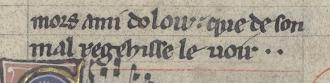 mors ami dolour: que de son
mal regehisse le uoir · ·